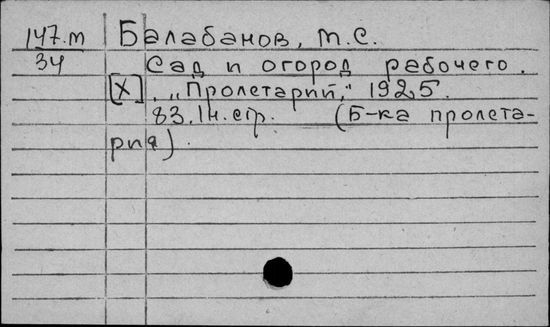 147.м Балабанов, М.С.
34 Сад и огород рабочего.
[X], „Пролетарий," 1925.
83, 1н. стр. (Б-ка пролета-
рия).